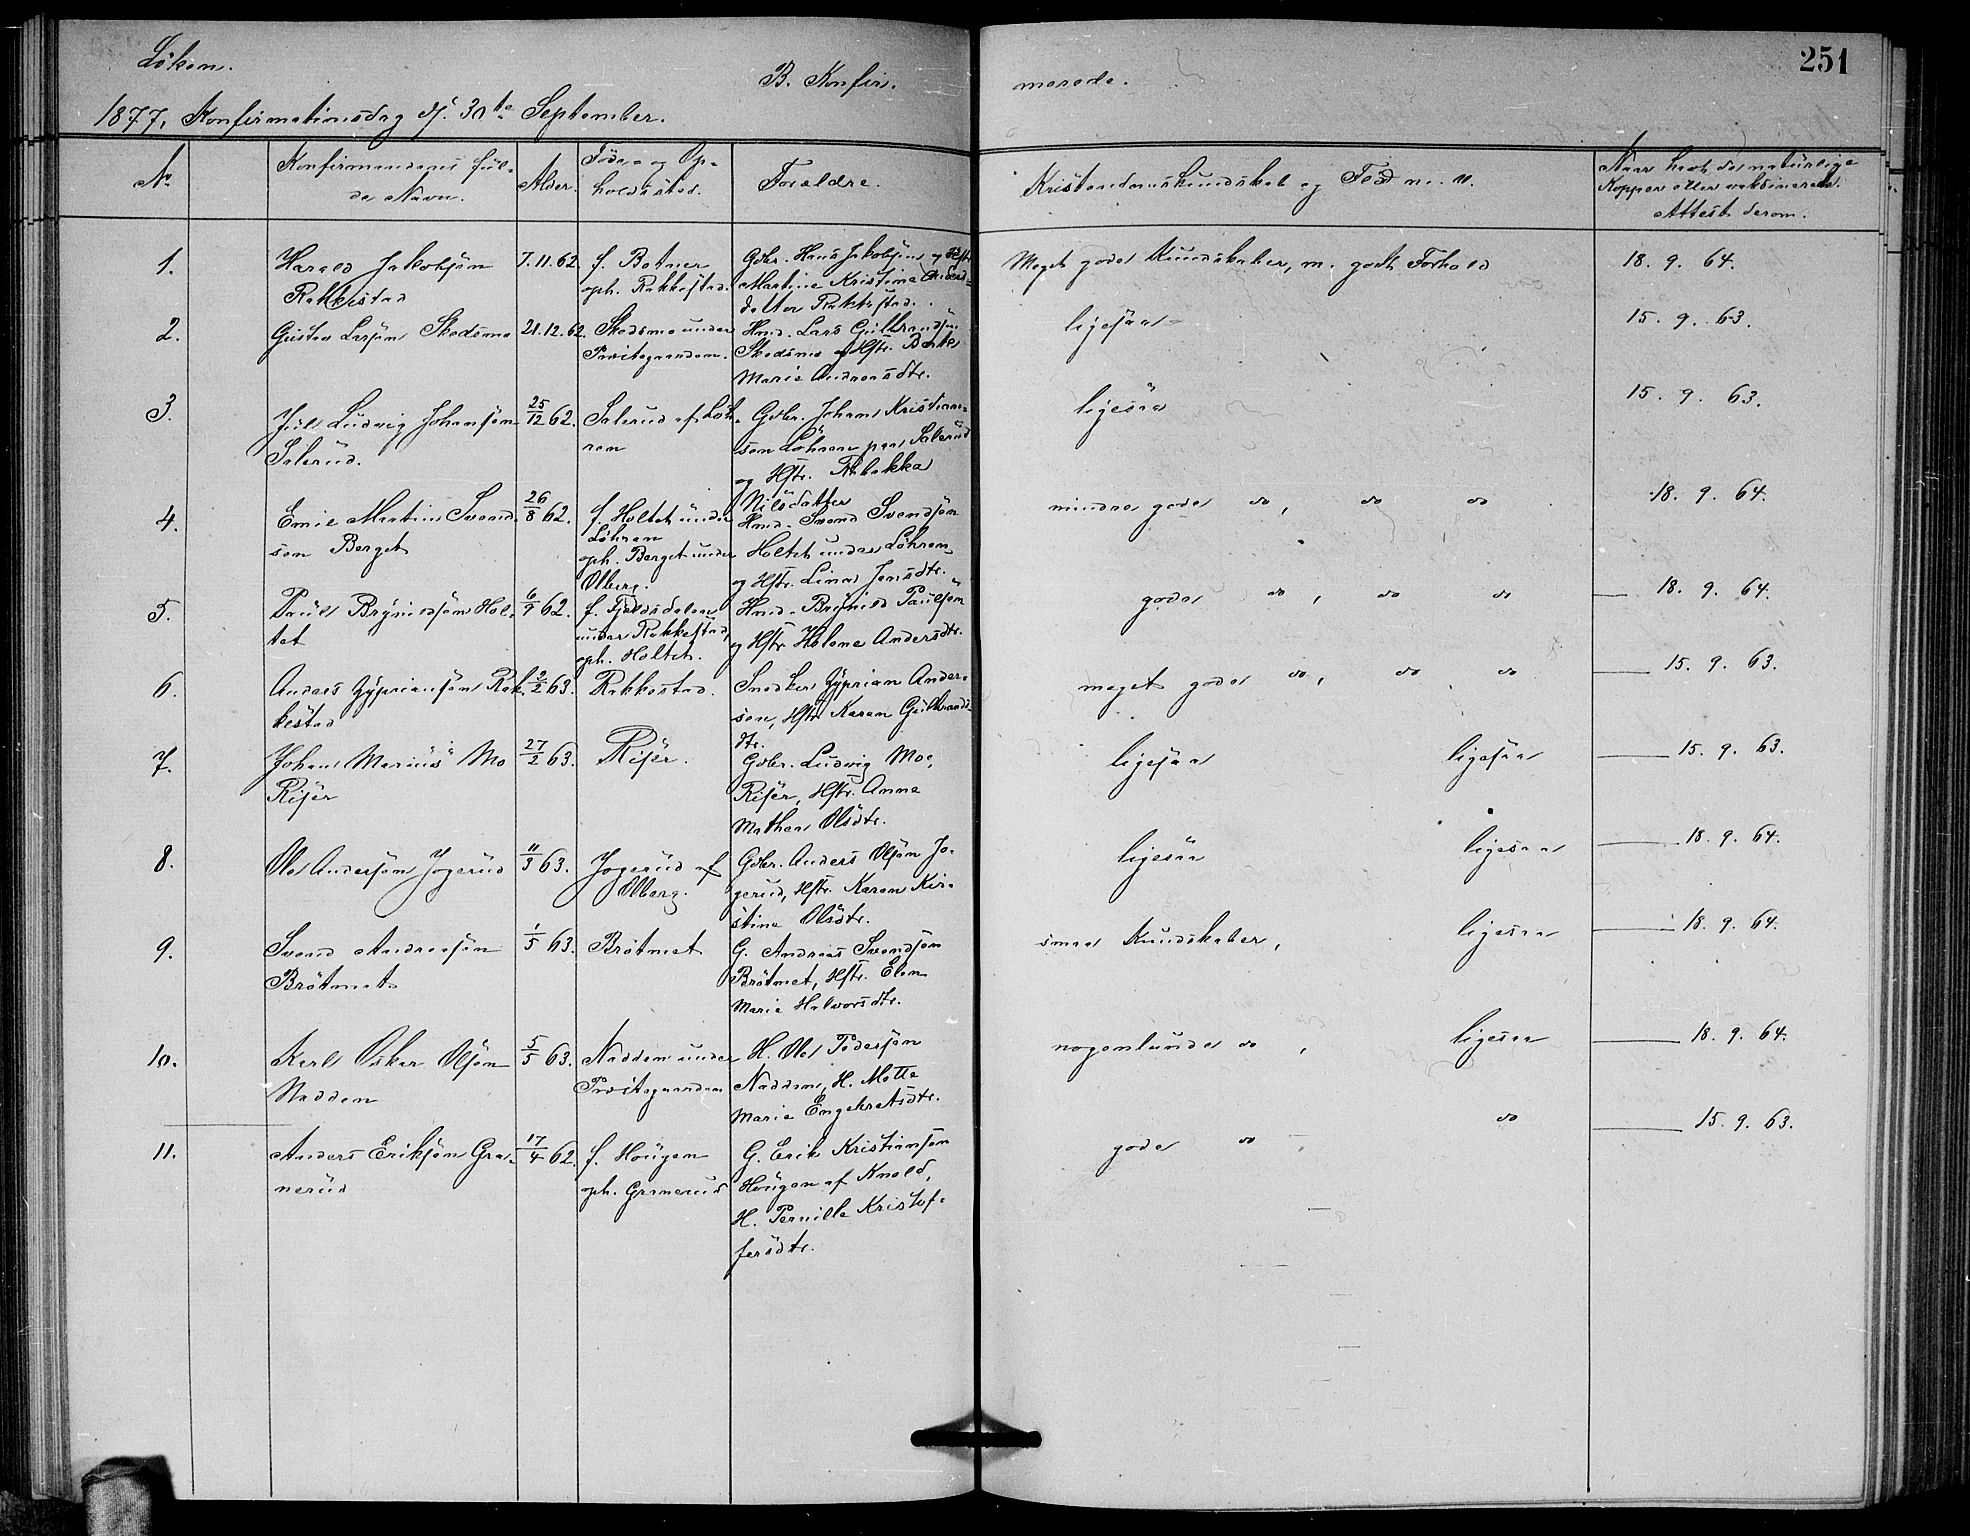 251
Løken.
B. Konfir- merede.
1877, Konfirmationsdag d. 30te September.
No
Konfirmandens ful-
de Navn.
Alder.
Føde- og Op-
holdssted.
Forældre.
Kristendomskundskab og Forh. m. v.
Naar havt de naturlige
Kopper eller vaksineret.
Attest derom.
1.
Harald Jakobsen
Rakkestad
7.11.62.
f. Botner
oph. Rakkestad.
Gbr. Hans Jakobsen og Hstr.
Martine Kristine Anders-
datter Rakkestad.
Meget gode Kundskaber, m. godt Forhold
18. 9. 64.
2.
Gustav Larsen Skedsmo
21.12.62.
Skedsmo under
Præstegaarden.
Hmd. Lars Gulbrandsen
Skedsmo og Hstr. Berte
Marie Andreasdtr.
ligesaa
15. 9. 63.
3.
Juls Ludvig Johansen
Salerud.
25/12 62.
Salerud af Løh-
ren
Gbr. Johan Kristian-
sen Løhren paa Salerud
og Hstr. Rebekka
Nilsdatter
ligesaa
15. 9. 63.
4.
Emil Martin Svend-
sen Berget
26/8 62.
f. Holtet under
Løhren
oph. Berget under
Olberg.
Hmd. Svend Svendsen
Holtet under Løhren
og Hstr. Lina Jensdtr.
mindre gode do, do do
18. 9. 64.
5.
Paul Brynildsen Hol-
tet
6/9 62.
f. Fjeldsdalen
under Rakkestad,
oph. Holtet.
Hmd. Brynild Paulsen
og Hstr. Helene Andersdtr.
gode do, do do
18. 9. 64.
6.
Anders Zypriansen Rak-
kestad
2/2 63.
Rakkestad.
Snedker Zyprian Ander-
sen, Hstr. Karen Gulbrands-
dtr.
meget gode do, do do
15. 9. 63.
7.
Johan Marius Mo
Risør
27/2 63.
Risør.
Gbr. Ludvig Moe,
Risør, Hstr. Anne
Mathea Olsdtr.
ligesaa ligesaa
15. 9. 63.
8.
Ole Andersen Jogerud
11/3 63.
Jogerud af
Olberg.
Gbr. Anders Olsen Jo-
gerud, Hstr. Karen Kir-
stine Olsdtr.
ligesaa ligesaa
18. 9. 64.
9.
Svend Andreasen
Bråtmet
1/5 63.
Bråtmet
G. Andreas Svendsen
Bråtmet, Hstr. Elen
Marie Halvorsdtr.
smaa Kundskaber, ligesaa
18. 9. 64.
10.
Karl Oskar Olsen
Nadden
5/5 63.
Nadden under
Præstegaarden
H. Ole Pedersen
Nadden, H. Mette
Marie Engebretsdtr.
nogenlunde do, ligesaa
18. 9. 64.
11.
Anders Eriksen Gra-
nerud
17/4 62.
f. Haugen
oph. Granerud
G. Erik Kristiansen
Haugen af Knold,
H. Pernille Kristof-
fersdtr.
gode do - do
15. 9. 63.